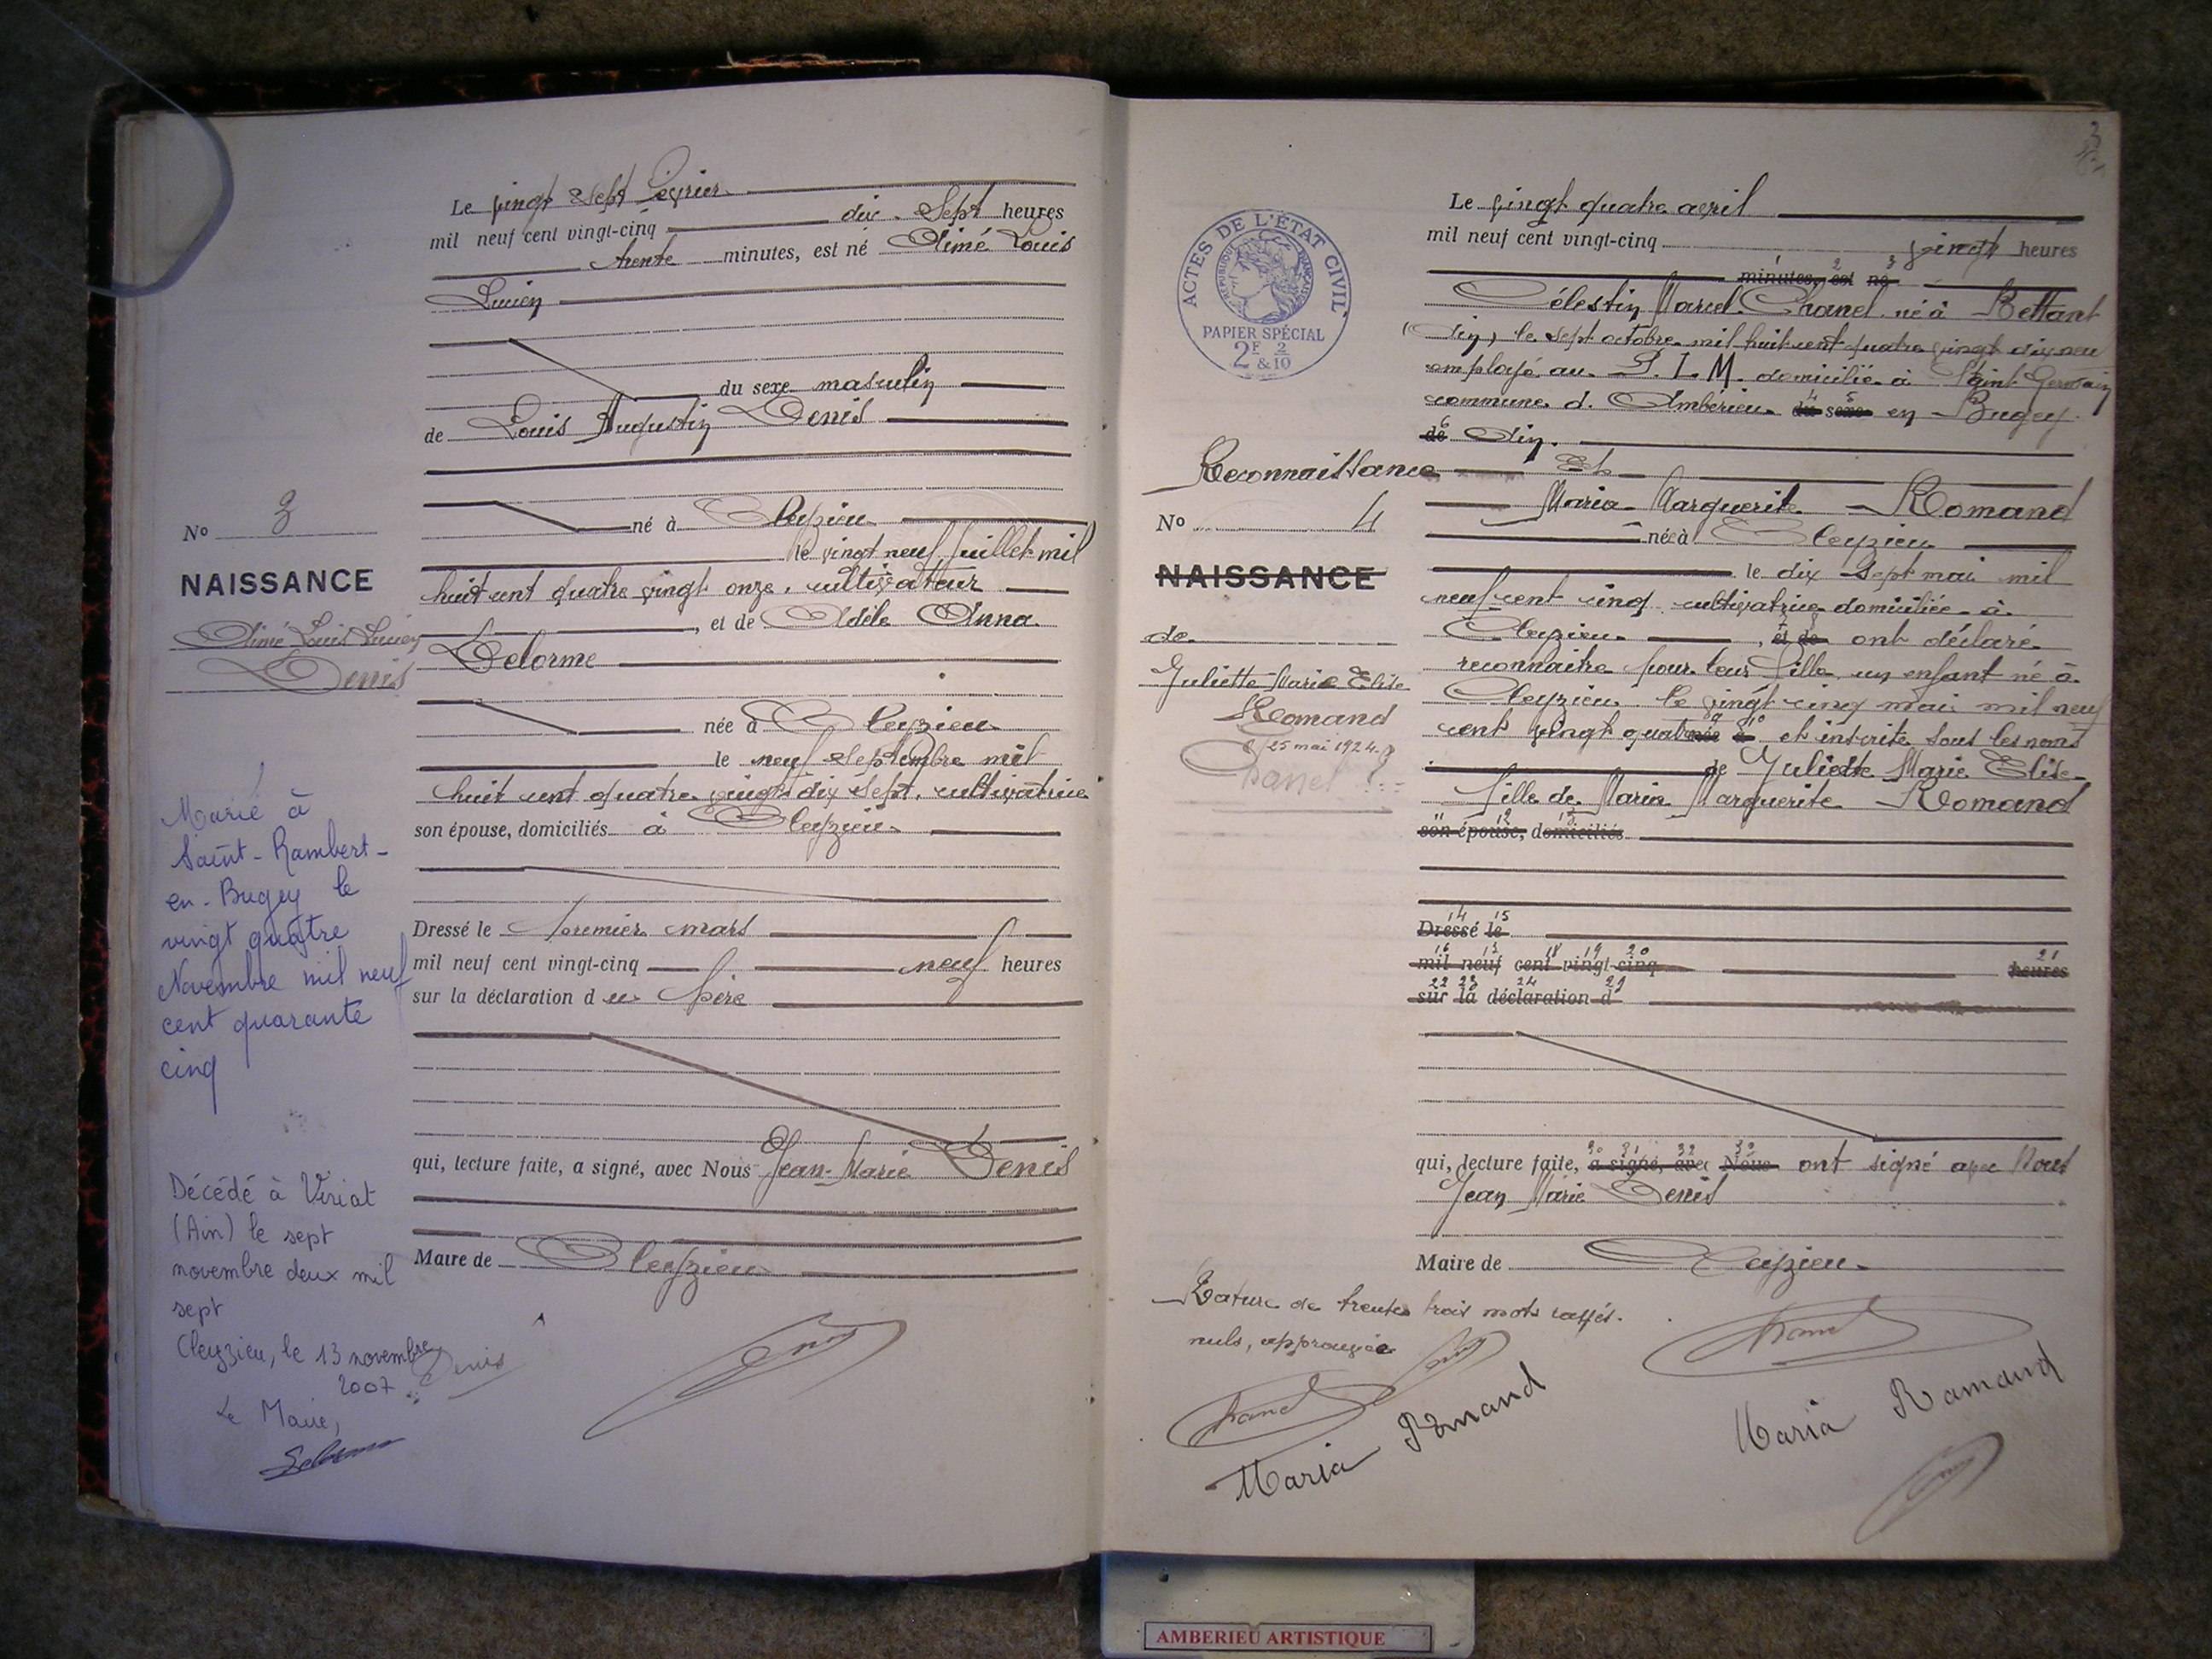 Le vingt sept février
mil neuf cent vingt-cinq dix-sept heures
trente minutes, est né Aimé Louis
Lucien
du sexe masculin
de Louis Augustin Denis
né à Cleyzieu
le vingt neuf juillet mil
huit cent quatre vingt onze, cultivateur
, et de Adèle Anna
Delorme
née à Cleyzieu
le neuf septembre mil
huit cent quatre vingt dix sept, cultivatrice
son épouse, domiciliés à Cleyzieu
Dressé le premier mars
mil neuf cent vingt-cinq neuf heures
sur la déclaration du père
qui, lecture faite, a signé, avec Nous Jean-Marie Denis
Maire de Cleyzieu
No 3
NAISSANCE
Aimé Louis Lucien
Denis
Marié à
Saint-Rambert-
en-Bugey le
vingt quatre
Novembre mil neuf
cent quarante
cinq
Denis
Décédé à Viriat
(Ain) le sept
novembre deux mil
sept
Cleyzieu, le 13 novembre
2007
Le Maire,
Le vingt quatre avril
mil neuf cent vingt-cinq vingt heures
1 2 3
minutes, est né
Célestin Marcel Chanel né à Bettant
(Ain), le sept octobre mil huit cent quatre vingt dix neuf
employé au P.L.M. domicilié à Saint Germain
commune d'Ambérieu du sexe en Bugey
de Ain.
Et
Maria Marguerite Romand
née à Cleyzieu
le dix sept mai mil
neuf cent cinq cultivatrice domiciliée à
Cleyzieu , et de ont déclaré
reconnaître pour leur fille un enfant né à
Cleyzieu le vingt cinq mai mil neuf
cent vingt quatre née à et inscrite sous les noms
de Juliette Marie Elise
fille de Maria Marguerite Romand
11 12 13
son épouse, domiciliés
14 15
Dressé le
16 17 18 19 20 21
mil neuf cent vingt-cinq heures
22 23 24
sur la déclaration d
qui, lecture faite, a signé, avec Nous ont signé avec Nous
Jean Marie Denis
Maire de Cleyzieu
ACTES DE L'ÉTAT CIVIL
RÉPUBLIQUE FRANÇAISE
PAPIER SPÉCIAL
2F & 2/10
Reconnaissance
No 4
NAISSANCE
de
Juliette Marie Elise
Romand
25 mai 1924
Chanel
Rature de trente trois mots rayés
nuls, approuvée
Chanel
Maria Romand
Chanel
Maria Romand
AMBERIEU ARTISTIQUE